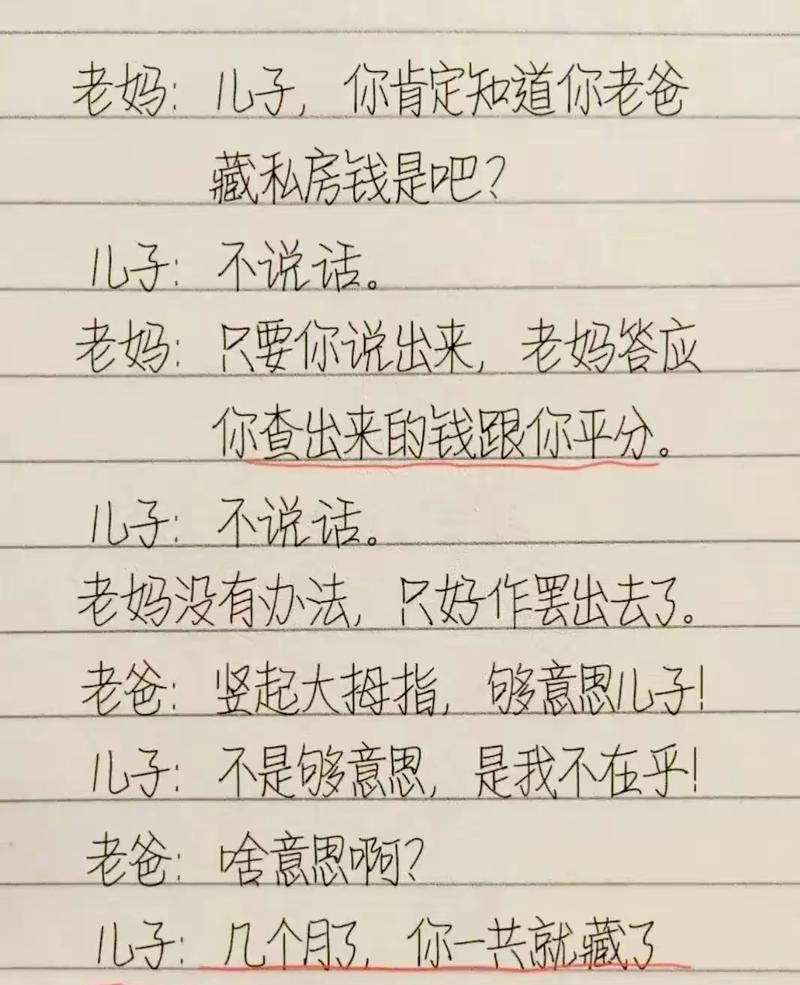 老妈：儿子，你肯定知道你老爸
藏私房钱是吧？
儿子：不说话。
老妈：只要你说出来，老妈答应
你查出来的钱跟你平分。
儿子：不说话。
老妈没有办法，只好作罢出去了。
老爸：竖起大拇指，够意思儿子！
儿子：不是够意思，是我不在乎！
老爸：啥意思啊？
儿子：几个月了，你一共就藏了